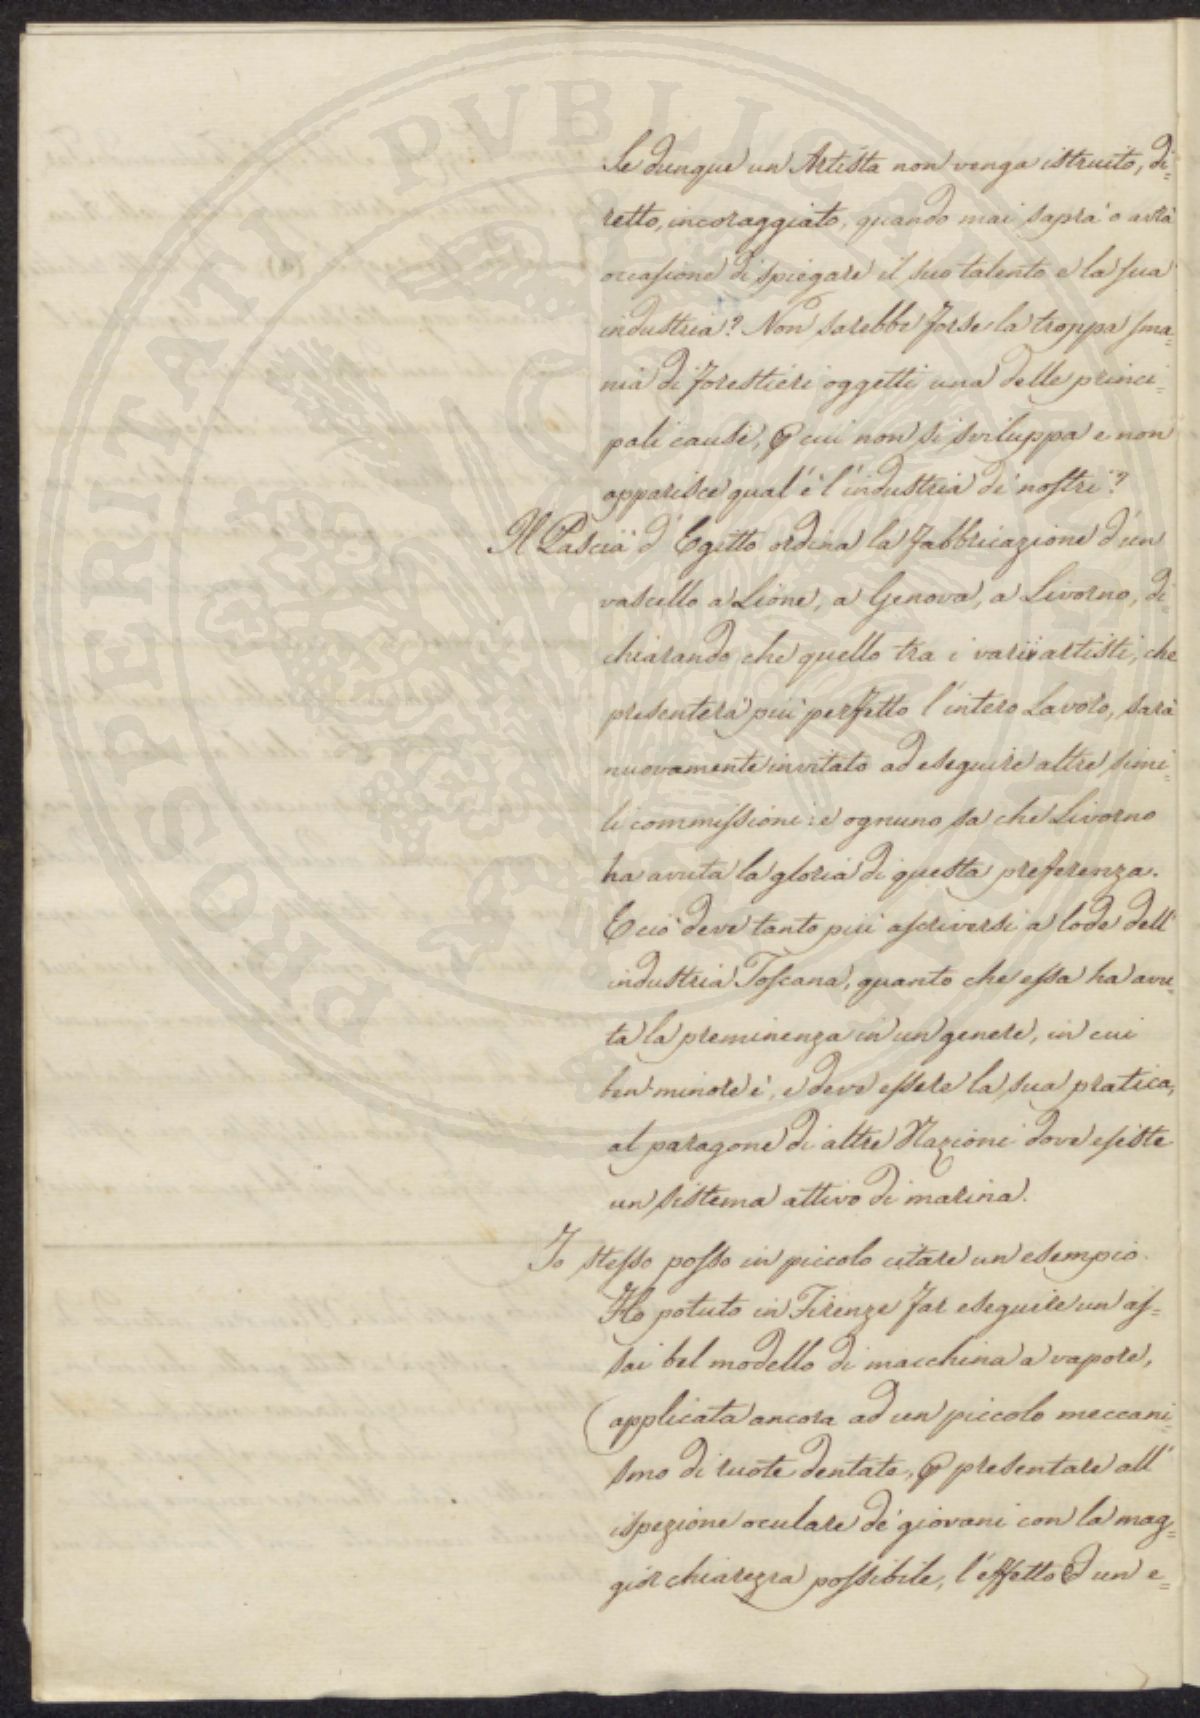 Se dunque un Artista non venga istruito, di=
retto, incoraggiato, quando mai saprà o avrà
occasione di spiegare il suo talento e la sua
industria? Non sarebbe forse la troppa sma=
nia di forestieri oggetti una delle princi=
pali cause, p cui non si sviluppa e non
apparisce qual'è l'industria di nostri?
Il Pascià d'Egitto ordina la fabbricazione d'un
vascello a Lione, a Genova, a Livorno, di=
chiarando che quello tra i varii artisti, che
presenterà più perfetto l'intero Lavoro, sarà
nuovamente invitato ad eseguire altre simi=
li commissioni: e ognuno sa che Livorno
ha avuta la gloria di questa preferenza.
E ciò deve tanto più ascriversi a lode dell'
industria Toscana, quanto che essa ha avu=
ta la preminenza in un genere, in cui
ben minore è, e deve essere la sua pratica,
al paragone di altre Nazioni dove esiste
un sistema attivo di marina.
Io stesso posso in piccolo citare un esempio.
Ho potuto in Firenze far eseguire un as=
sai bel modello di macchina a vapore,
(applicata ancora ad un piccolo meccani=
smo di ruote dentate, p presentare all'
ispezione oculare de' giovani con la mag=
gior chiarezza possibile, l'effetto d'un e=
PROSPERITATI PVBLICAE